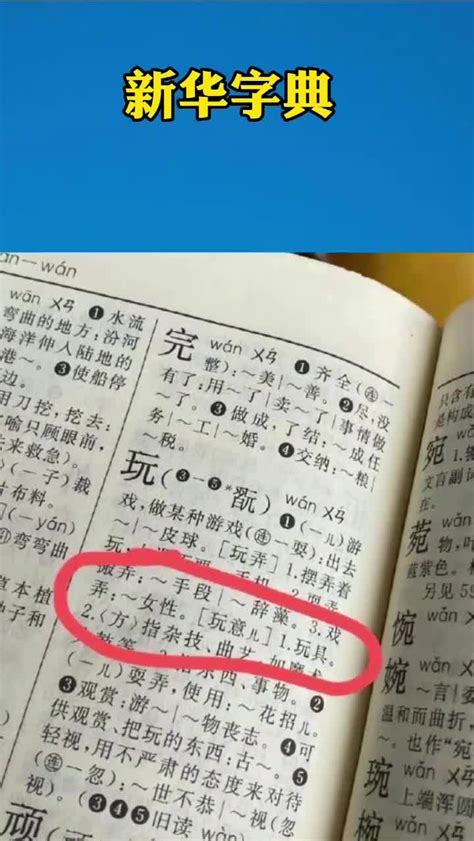 新华字典
ān—wán
wān ㄨㄢ ❶水流
弯曲的地方:沿河
海洋伸入陆地的
港~。❸使船停
边。
用刀挖,挖去:
喻只顾眼前,
来救急)。
(一子)裁
布料。
(—yán)
弯弯曲
草本植
子和
完 wán ㄨㄢ ❶齐全(连一
整):~美|~善。❷尽,没
有了:用~了|卖~了|事情做
~了。❸做成,了结:~成任
务|~工|~婚。❹交纳:~粮|
~税。
玩(❸-❺*翫) wán ㄨㄢ ❶(一儿)游
戏,做某种游戏(连一耍):出去
~|~皮球。[玩弄]1.摆弄着
玩
弄:~手段|~辞藻。3.戏
弄:~女性。[玩意儿]1.玩具。
2.〈方〉指杂技、曲艺,如魔术
东西、事物。❷
(一儿)耍弄,使用:~花招儿。
❸观赏:游~|~物丧志。❹可
供观赏、把玩的东西:古~。❺
轻视,用不严肃的态度来对待
(连一忽):~世不恭|~视
视)。(❸❹❺旧读 wàn
顽 wán
只含有
是构成
宛
文言副词
在。
菀 wǎn
物,叶
蓝紫色。
另见59
惋 wǎn
婉 wǎn
~言|
温和而曲折
~。也作"宛
琬 wǎn
上端浑圆
椀